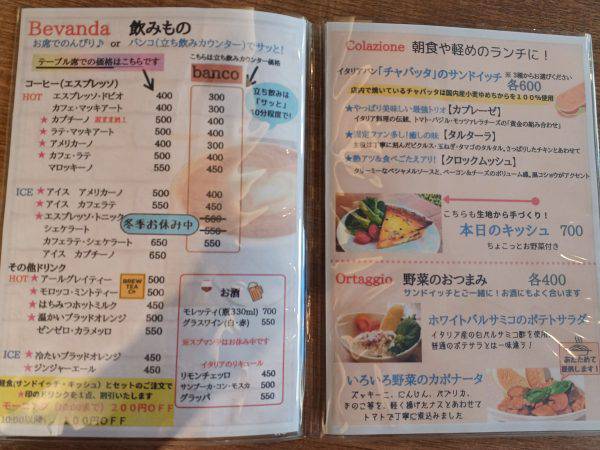 Bevanda 飲みもの
お席でのんびり♪ or バンコ(立ち飲みカウンター)でサッと!
テーブル席での価格はこちらです
こちらは立ち飲みカウンター価格
banco
立ち飲みは
「サッと」
10分程度で!
コーヒー(エスプレッソ)
HOT エスプレッソ・ドピオ 400 300
カフェ・マッキアート 400 300
★カプチーノ 500 400
★ラテ・マッキアート 500 400
★アメリカーノ 400 300
★カフェ・ラテ 500 400
マロッキーノ 550 450
ICE ★アイス アメリカーノ 500 400
★アイス カフェラテ 550 450
★エスプレッソ・トニック 550
シェケラート 550
冬季お休み中
カフェラテ・シェケラート 650 550
アイス カプチーノ 650
その他ドリンク
HOT ★アールグレイティー 500
★モロッコ・ミントティー 500
★はちみつホットミルク 450
★温かいブラッドオレンジ 500
ゼンゼロ・カラメッロ 550
BREW TEA Co
ICE ★冷たいブラッドオレンジ 450
★ジンジャーエール 450
お酒
モレッティ(瓶330ml) 700
グラスワイン(白・赤) 550
※スプマンテはお休み中です
イタリアのリキュール
リモンチェッロ 450
サンブーカ・コン・モスカ 500
グラッパ 550
軽食(サンドイッチ・キッシュ)とセットのご注文で
★印のドリンクを1点、割引いたします
200円OFF
10:00以降 100円OFF
Colazione 朝食や軽めのランチに!
イタリアパン「チャバッタ」のサンドイッチ ※3種からお選びください
各600
店内で焼いているチャバッタは国内産小麦ゆめちからを100%使用
★やっぱり美味しい最強トリオ【カプレーゼ】
イタリア料理の伝統、トマト・バジル・モッツァレラチーズの「黄金の組み合わせ」
★限定ファン多し!癒しの味【タルターラ】
主役は丁寧に刻んだピクルス・玉ねぎ・タマゴのタルタル。さっぱりしたチキンとあわせて
★熱アツ&食べごたえアリ!【クロックムッシュ】
クリーミーなベシャメルソースと、ベーコン&チーズのボリューム感。黒コショウがアクセント
こちらも生地から手づくり!
本日のキッシュ 700
ちょこっとお野菜付き
Ortaggio 野菜のおつまみ 各400
サンドイッチとご一緒に!お酒にもよく合います
ホワイトバルサミコのポテトサラダ
イタリア産の白バルサミコ酢を使用
普通のポテサラとは一味違う!
あたためて
提供します!
いろいろ野菜のカポナータ
ズッキーニ、にんじん、パプリカ、
きのこ等を、軽く揚げたナスとあわせて
トマトで丁寧に煮込みました